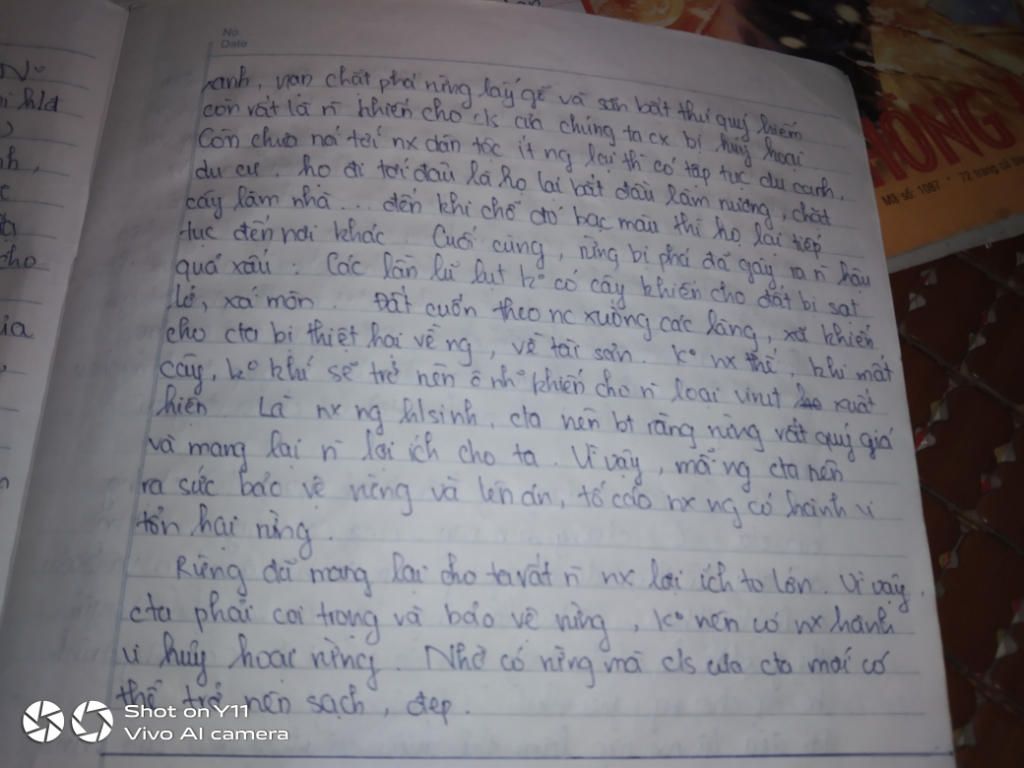 No.
Date
xanh, vạn chặt phá rừng lấy gỗ và săn bắt thú quý hiếm
còn rất là n khiến cho c/s của chúng ta cx bị hủy hoại
Còn chưa nói tới nx dân tộc ít ng lại thì có tập tục du canh,
du cư. họ đi tới đâu là họ lại bắt đầu làm nương, chặt
cây làm nhà ... đến khi chỗ đó bạc màu thì họ lại tiếp
tục đến nơi khác. Cuối cùng, rừng bị phá đã gây ra n hậu
quả xấu: Các lần lũ lụt k° có cây khiến cho đất bị sạt
lở, xói mòn. Đất cuốn theo nc xuống các làng, xã khiến
cho cta bị thiệt hại về ng, về tài sản. K° nx thế, khi mất
cây, k° khí sẽ trở nên ô nh° khiến cho n loại virut xuất
hiện. Là nx ng h/sinh, cta nên bt rằng rừng rất quý giá
và mang lại n lợi ích cho ta. Vì vậy, mỗi ng cta nên
ra sức bảo vệ rừng và lên án, tố cáo nx ng có hành vi
tổn hại rừng.
Rừng đã mang lại cho ta rất n nx lợi ích to lớn. Vì vậy,
cta phải coi trọng và bảo vệ rừng, k° nên có nx hành
vi hủy hoại rừng. Nhờ có rừng mà c/s của cta mới có
thể trở nên sạch, đẹp.
HỒNG
Mã số: 1087 • 72 trang
Shot on Y11
Vivo AI camera